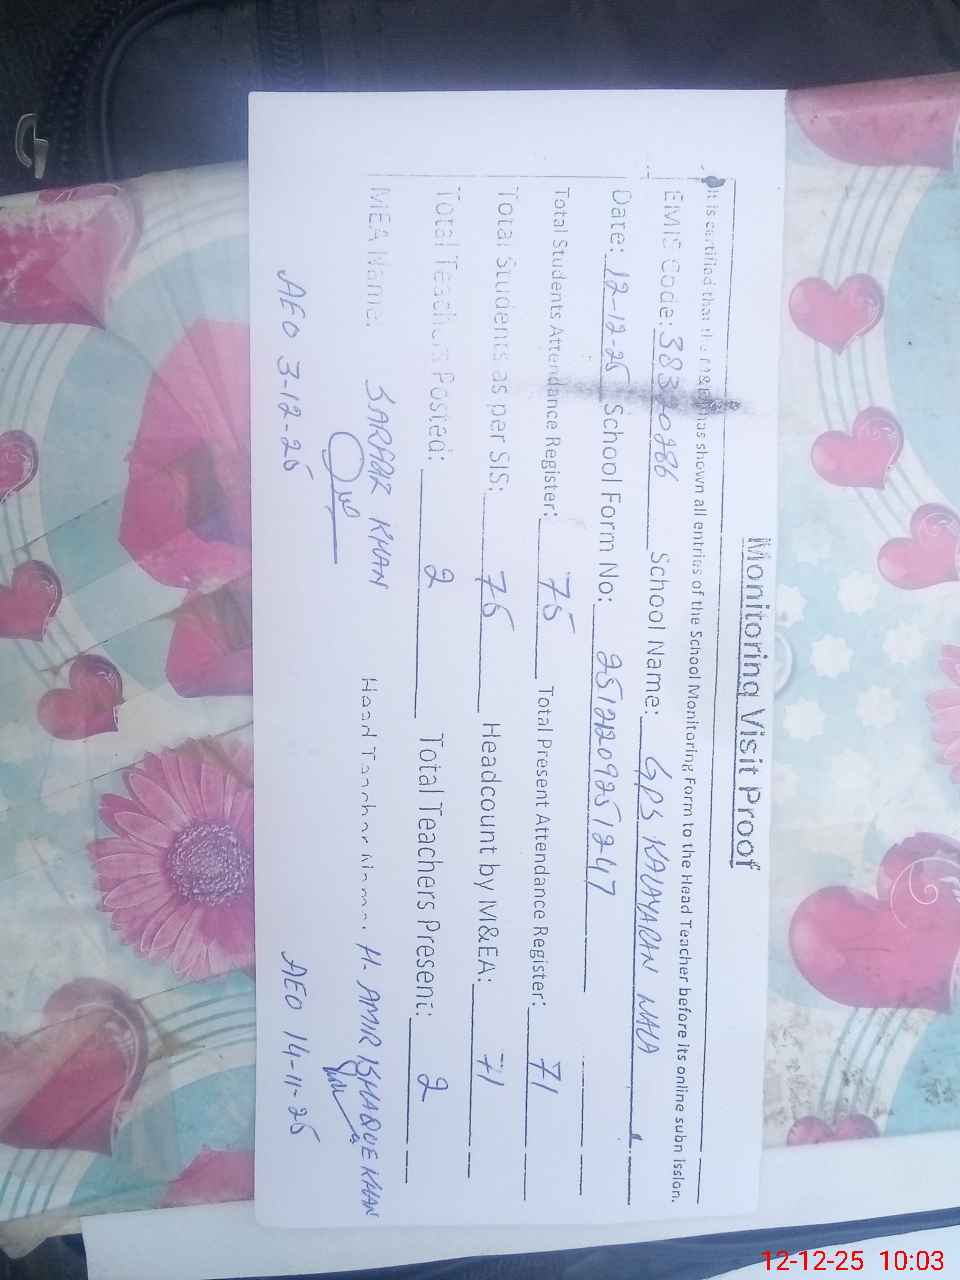 Monitoring Visit Proof
It is certified that the M&EA has shown all entries of the School Monitoring Form to the Head Teacher before its online submission.
EMIS Code: School Name: GPS KALAYARAN WALA
Date: 12-12-25 School Form No: 25121209251247
Total Students Attendance Register: 75 Total Present Attendance Register: 71
Total Students as per SIS: 75 Headcount by M&EA: 71
Total Teachers Posted: 2 Total Teachers Present: 2
MEA Name: SARDAR KHAN Head Teacher Name: H. AMIR KHAN
AEO 3-12-25 AEO 14-11-25
12-12-25 10:03